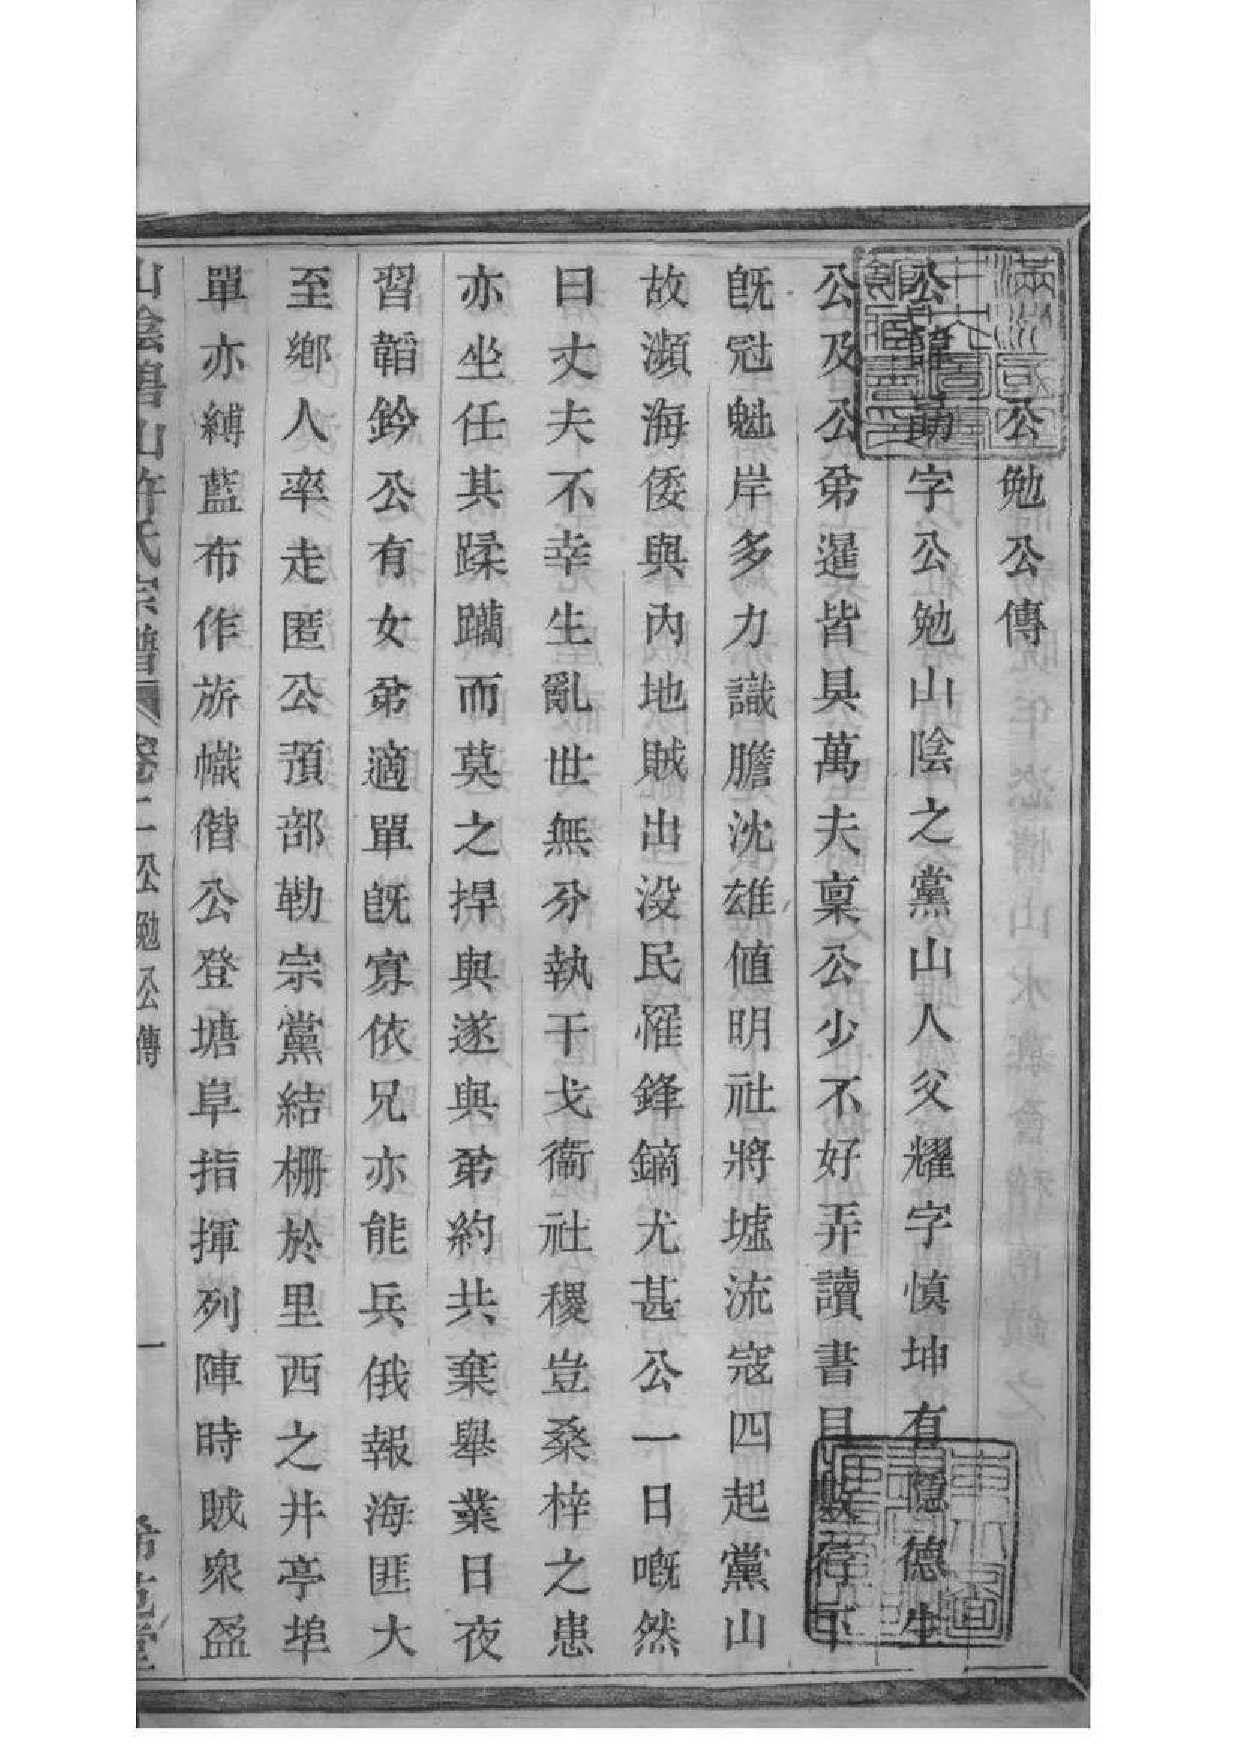 公勉公傳
公諱勛字公勉山陰之黨山人父耀字慎坤有隱德生
公及公弟暹皆具萬夫稟公少不好弄讀書目數行下
旣冠魁岸多力識膽沈雄值明社將墟流寇四起黨山
故瀕海倭與內地賊出没民罹鋒鏑尤甚公一日嘅然
曰丈夫不幸生亂世無分執干戈衞社稷豈桑梓之患
亦坐任其蹂躪而莫之捍與遂與弟約共棄舉業日夜
習韜鈐公有女弟適單旣寡依兄亦能兵俄報海匪大
至鄉人卒走匿公預部勒宗黨結柵於里西之井亭埠
單亦縛藍布作旂幟偕公登塘阜指揮列陣時賊衆盈
山陰黨山許氏宗譜 卷二 公勉公傳 一 堂